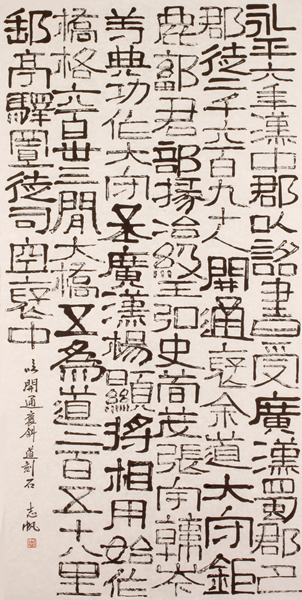 永平六年漢中郡以詔書受廣漢蜀郡巴
郡徒二千六百九十人開通褒余道大守鉅
鹿鄐君部掾治級王弘史荀茂張宇韓岑
等典功作大守丞廣漢楊顯將相用始作
橋格六百卅三間大橋五為道二百五十八里
郵亭驛置徒司空褒中
臨開通褒斜道刻石 志帆